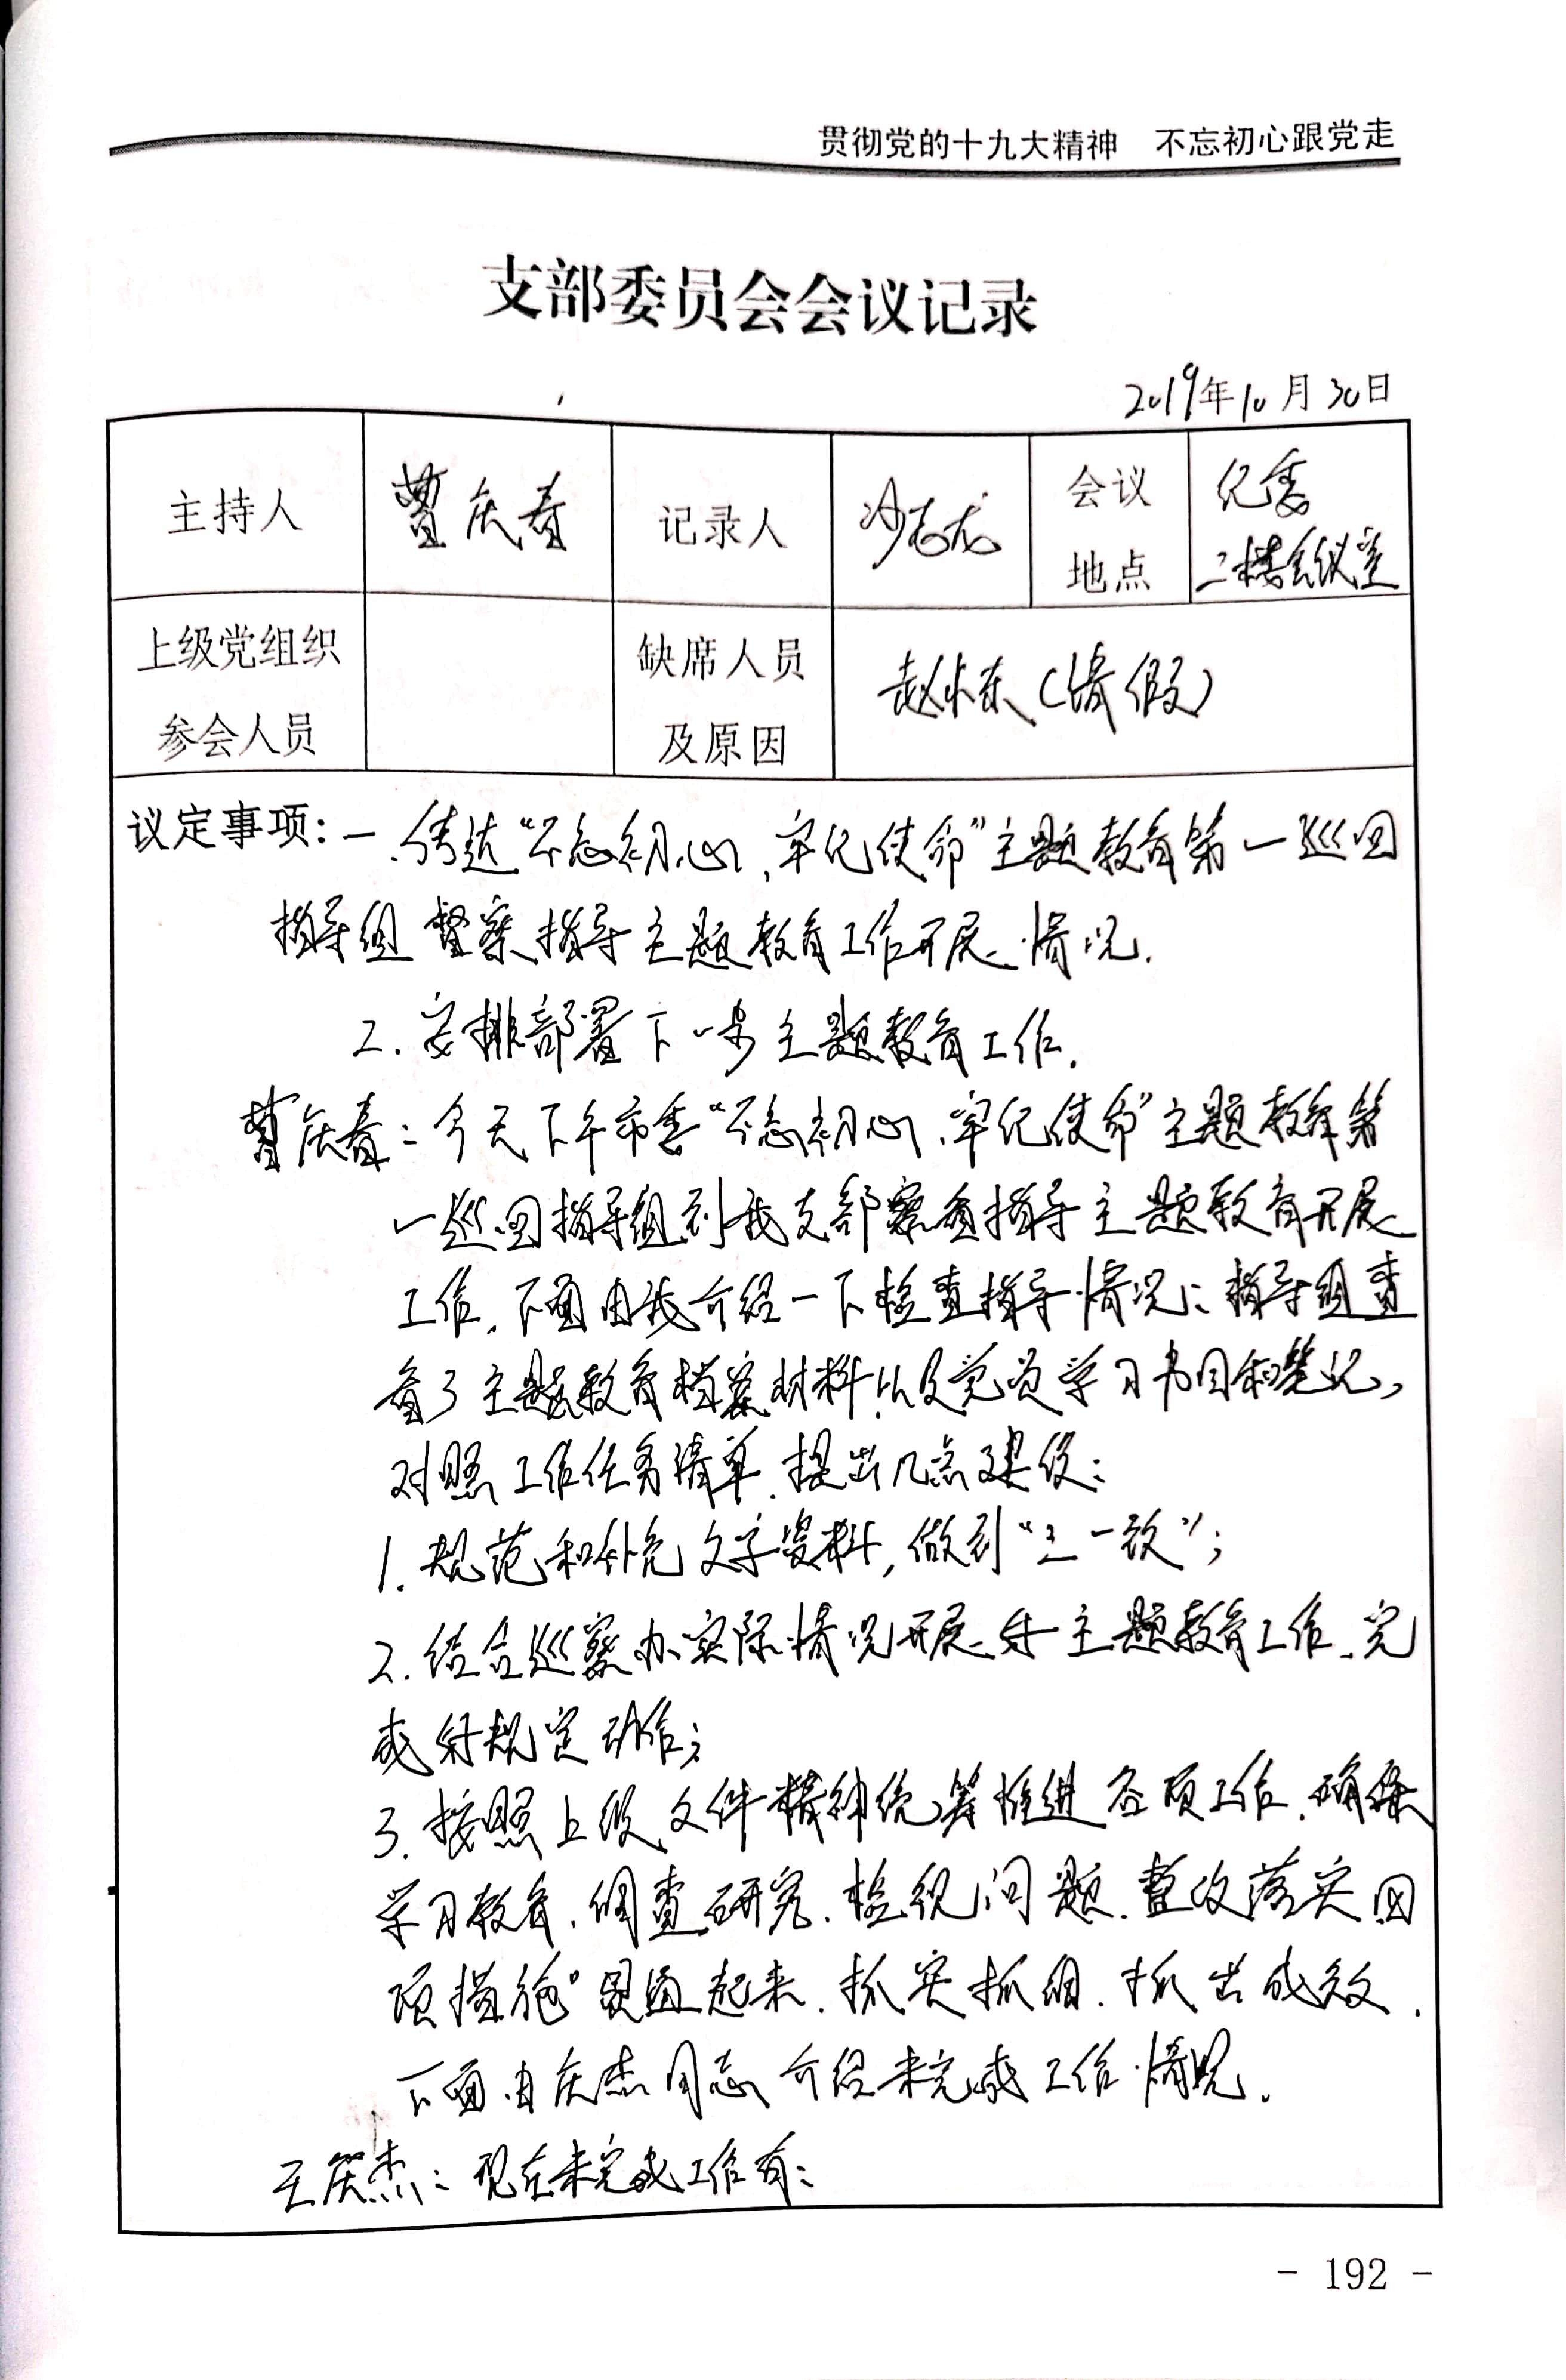 贯彻党的十九大精神 不忘初心跟党走
支部委员会会议记录
2019年10月30日
主持人 曹庆春 记录人 沙志龙 会议地点 纪委二楼会议室
上级党组织参会人员 缺席人员及原因 赵小东(请假)
议定事项:一、传达“不忘初心、牢记使命”主题教育第一巡回
指导组督察指导主题教育工作开展情况.
2.安排部署下一步主题教育工作.
曹庆春:今天下午市委“不忘初心、牢记使命”主题教育第
一巡回指导组到我支部察查指导主题教育开展
工作,下面由我介绍一下检查指导情况:指导组查
看了主题教育档案材料以及党员学习书目和笔记,
对照工作任务清单,提出几点建议:
1.规范和补充文字资料,做到“三一致”;
2.结合巡察办实际情况开展好主题教育工作、完
成好规定动作;
3.按照上级文件精神统筹推进各项工作、确保
学习教育、调查研究、检视问题、整改落实四
项措施“贯通起来、抓实抓细、抓出成效.
下面由庆杰同志介绍未完成工作情况.
王庆杰:现在未完成工作有:
- 192 -